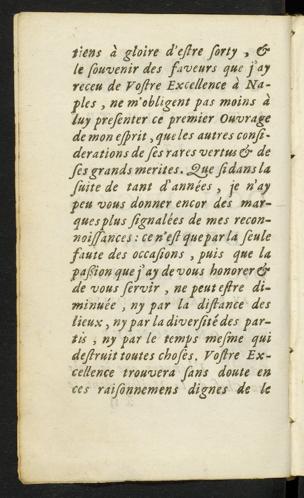 tiens à gloire d'eſtre ſorty, &
le ſouvenir des faveurs que j'ay
receu de Voſtre Excellence à Na-
ples, ne m'obligent pas moins à
luy preſenter ce premier Ouvrage
de mon eſprit, que les autres conſi-
derations de ſes rares vertus & de
ſes grands merites. Que ſi dans la
ſuite de tant d'années, je n'ay
peu vous donner encor des mar-
ques plus ſignalées de mes recon-
noiſſances: ce n'eſt que par la ſeule
faute des occaſions, puis que la
paßion que j'ay de vous honorer &
de vous ſervir, ne peut eſtre di-
minuée, ny par la diſtance des
lieux, ny par la diverſité des par-
tis, ny par le temps meſme qui
deſtruit toutes choſes. Voſtre Ex-
cellence trouvera ſans doute en
ces raiſonnemens dignes de le